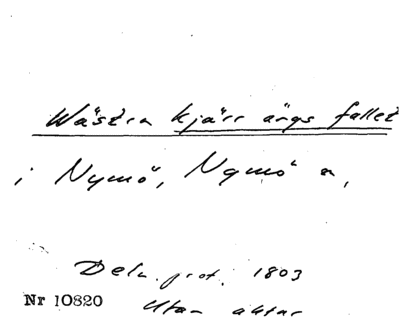 Wästra kjärr ängs fallet
i Nymö, Nymö s,
Deln. prot. 1803
Nr 10820
Utan aktar